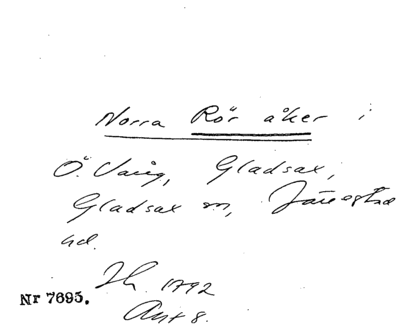 Norra Rör åker i
Ö. Vång, Gladsax,
Gladsax sn, Järrestad
hd.
Lh. 1792
Akt 8.
Nr 7695.